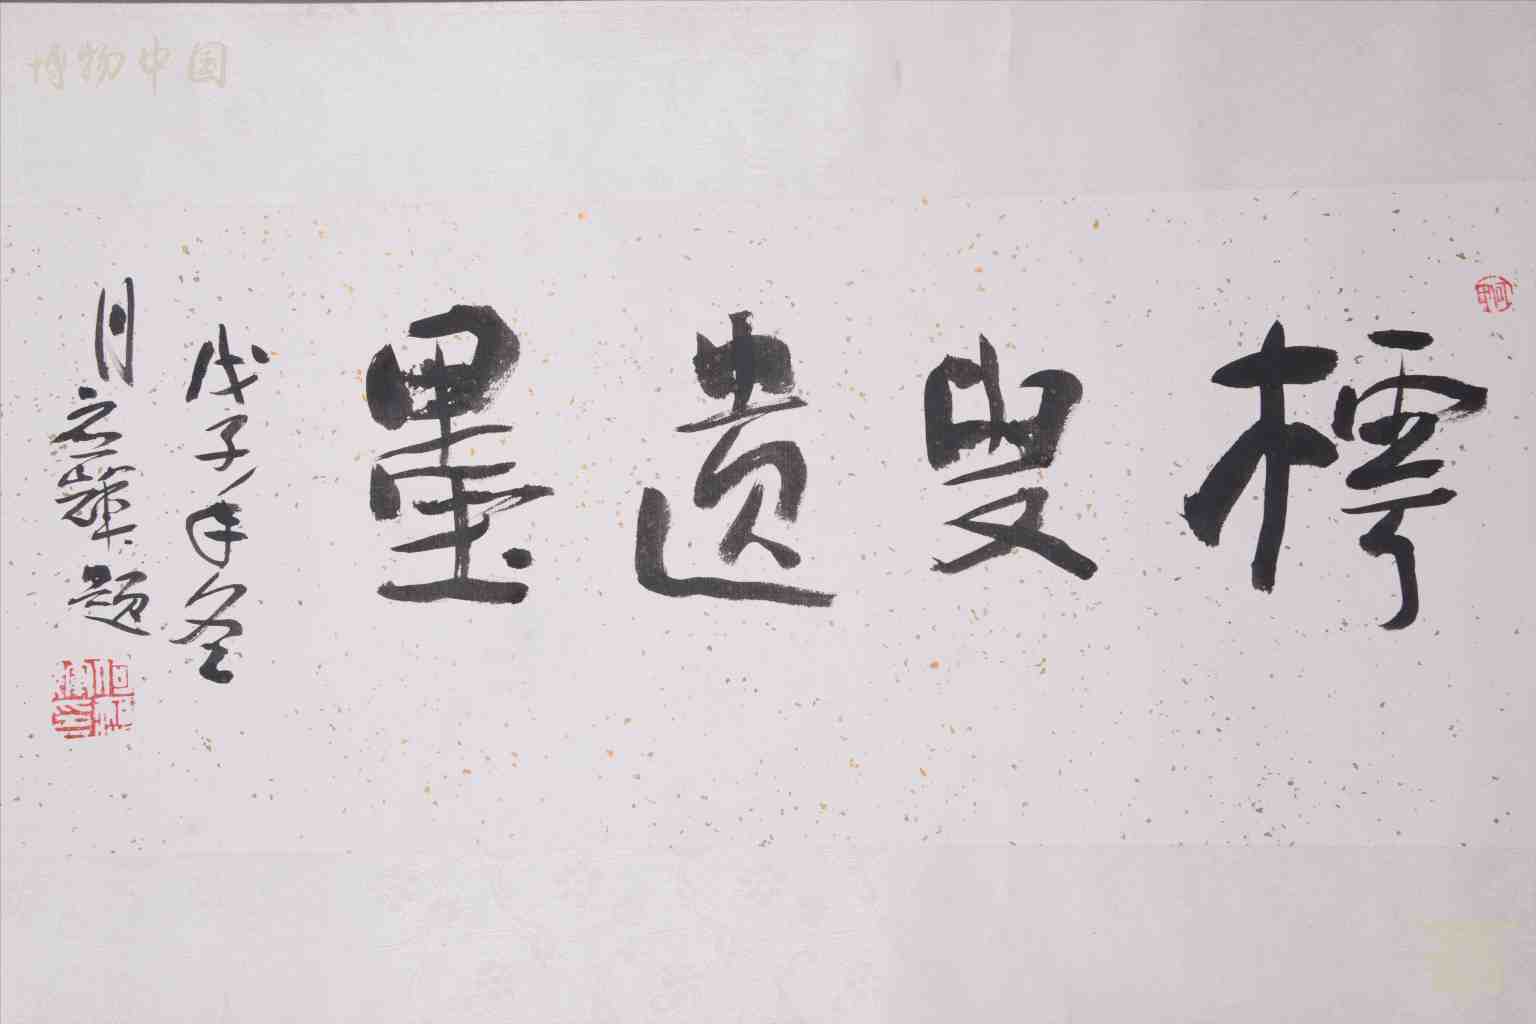 博物中国
樗叟遗墨
戊子年冬
月
题